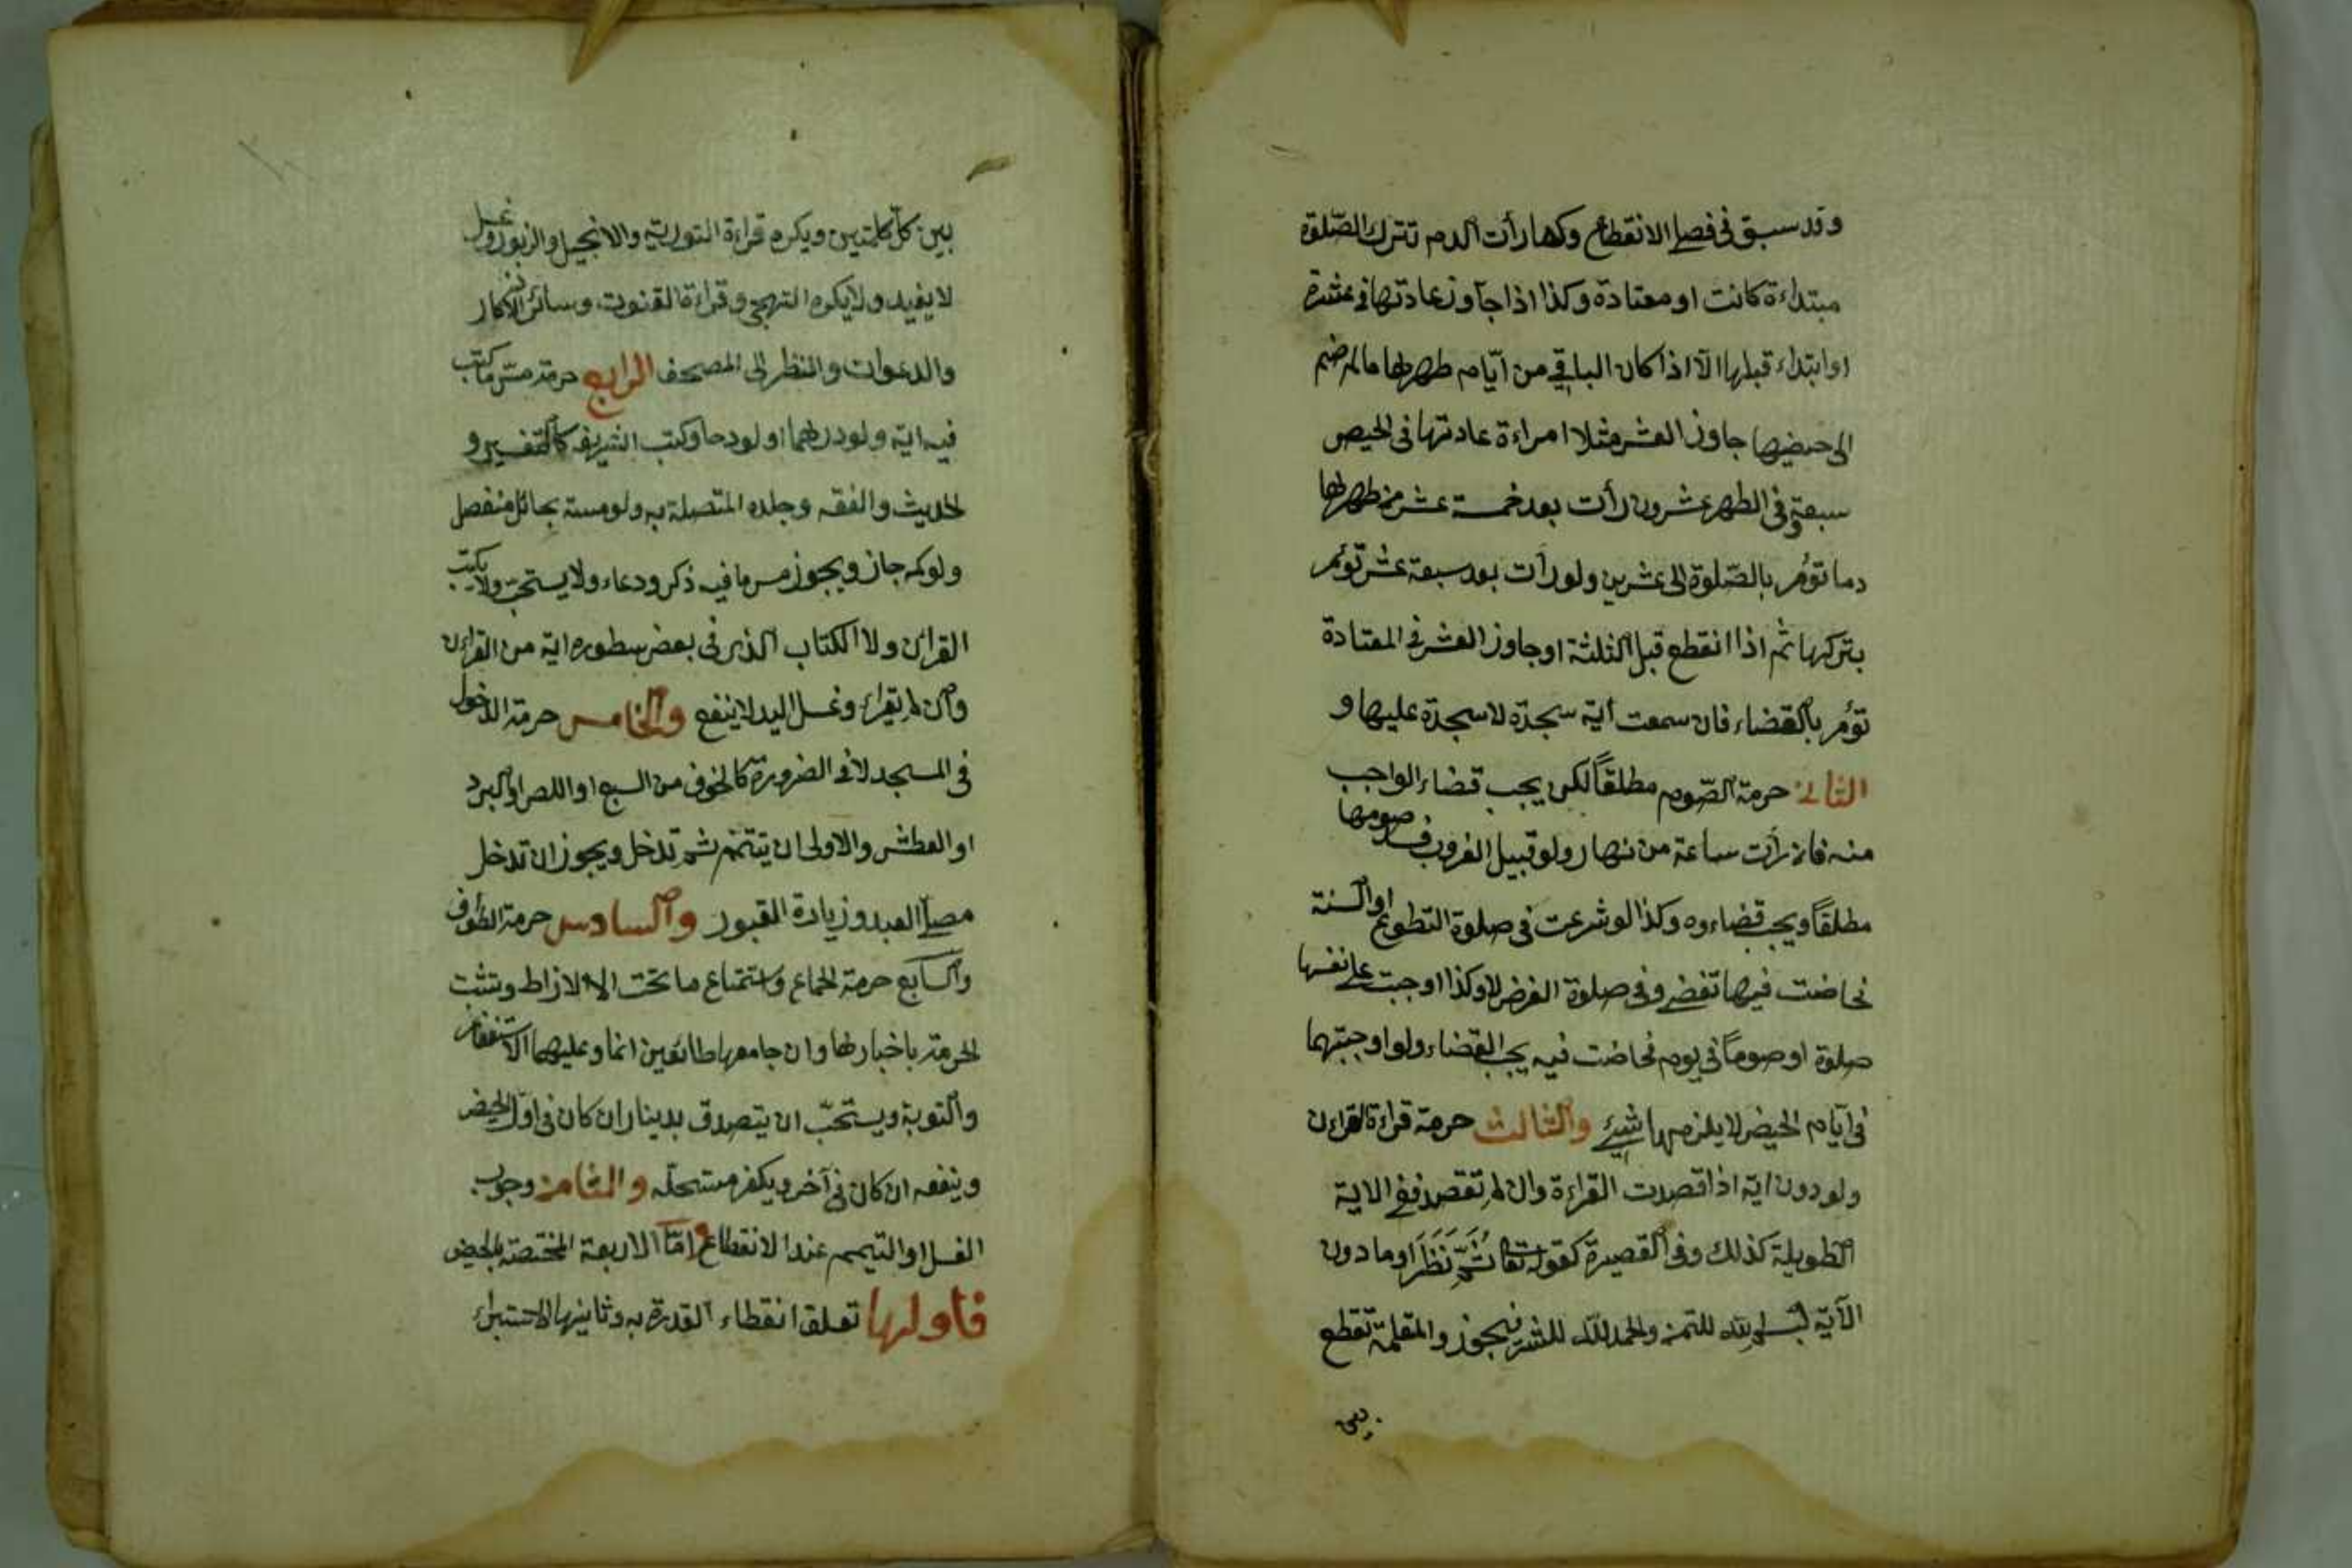 وقد سبق فى فصل الانقطاع وكما رأت الدم تترك الصّلوة
مبتداءة كانت او معتادة وكذا اذا جاوز عادتها فى عشرة
او ابتداء قبلها الّا اذا كان الباقى من ايّام طهرها ما لو ضم
الى حيضها جاوز العشر مثلا امراءة عادتها فى الحيض
سبعة وفى الطهر عشرون رأت بعد خمسة عشر من طهرها
دما تؤمر بالصّلوة الى عشرين ولو رأت بعد سبعة عشر تؤمر
بتركها ثم اذا انقطع قبل الثلثة او جاوز العشر فى المعتادة
تؤمر بالقضاء فان سمعت آية سجدة لا سجدة عليها و
الثانى حرمة الصّوم مطلقاً لكن يجب قضاء الواجب
منه فان رأت ساعة من نهار ولو قبيل الغروب فسد صومها
مطلقاً ويجب قضاءوه وكذا لو شرعت فى صلوة التطوع او السنة
فحاضت فيها تقضى وفى صلوة الفرض لا وكذا اوجبت على نفسها
صلوة او صوماً فى يوم فحاضت فيه يجب القضاء ولو اوجبتهما
فى ايّام الحيض لا يلزمها شيئ والثالث حرمة قراءة القرءان
ولو دون اية اذا قصدت القراءة وان لم تقصد ففى الاية
الطويلة كذلك وفى القصيرة كقوله تعا ثُمَّ نَظَرَ او ما دون
الآية كبسم الله للتيمن والحمد لله للشكر فيجوز والمعلمة تقطع
بين
بين كلّ كلمتين ويكره قراءة التورية والانجيل والزبور وغسل الفم
لا يفيد ولا يكره التهجى وقراءة القنوت وسائر الاذكار
والدعوات والنظر الى المصحف الرابع حرمة مسّ ما كتب
فيه اية ولو درهما او لوحا وكتب الشريف كالتفسير و
الحديث والفقه وجلده المتصلة به ولو مسته بحائل منفصل
ولو كمه جاز ويجوز مس ما فيه ذكر ودعاء ولا يستحبّ ولا يكتب
القرائن ولا الكتاب الذى فى بعض سطوره اية من القراءن
وان لم يقراء وغسل اليد لا ينفع والخامس حرمة الدخول
فى المسجد لا فى الضرورة كالخوف من السبع او اللص او البرد
او العطش والاولى ان يتيمم ثم تدخل ويجوز ان تدخل
مصلّ العيد وزيادة القبور والسادس حرمة الطواف
والسابع حرمة الجماع واستمتاع ما تحت الازار وتثبت
الحرمة باخبارها وان جامعها طائعين اثما وعليهما الاستغفار
والتوبة ويستحبّ ان يتصدق بدينار ان كان فى اوّل الحيض
وبنصفه ان كان فى آخره ويكفر مستحلّه والثامن وجوب
الغسل او التيمم عند الانقطاع وامّا الاربعة المختصة بالحيض
فاولها تعلق انقطاء العدة به وثانيها الاستبراء